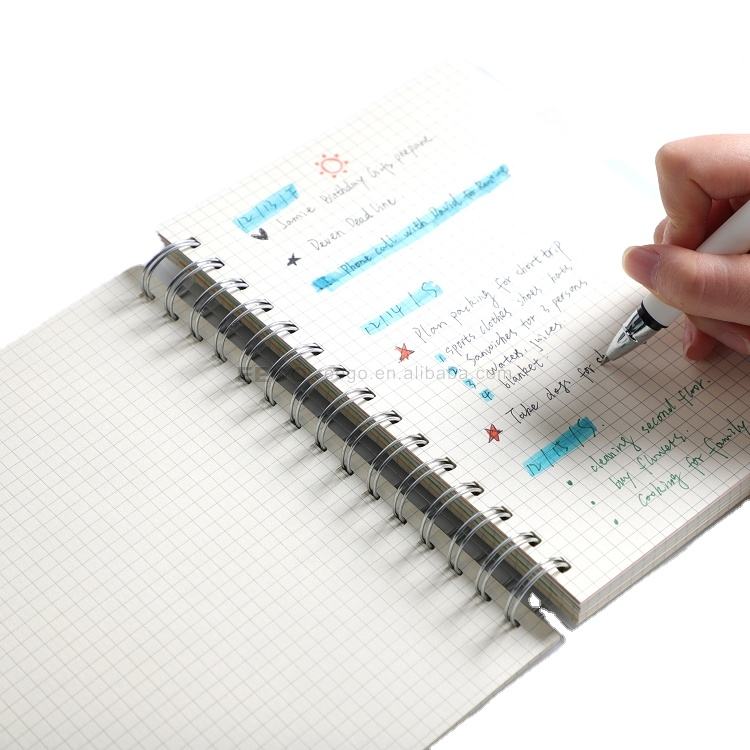 12/13/F
Jamie Birthday Gifts prepare
Deven Dead line
Phone call with David for
12/14/S
Plan packing for short trip
1 sports clothes shoes hats
2 Sandwiches for 3 persons
3 water, juices
4 blanket
Take dogs for
12/15/S
• cleaning second floor.
• buy flowers.
• cooking for family
.en.alibaba.com